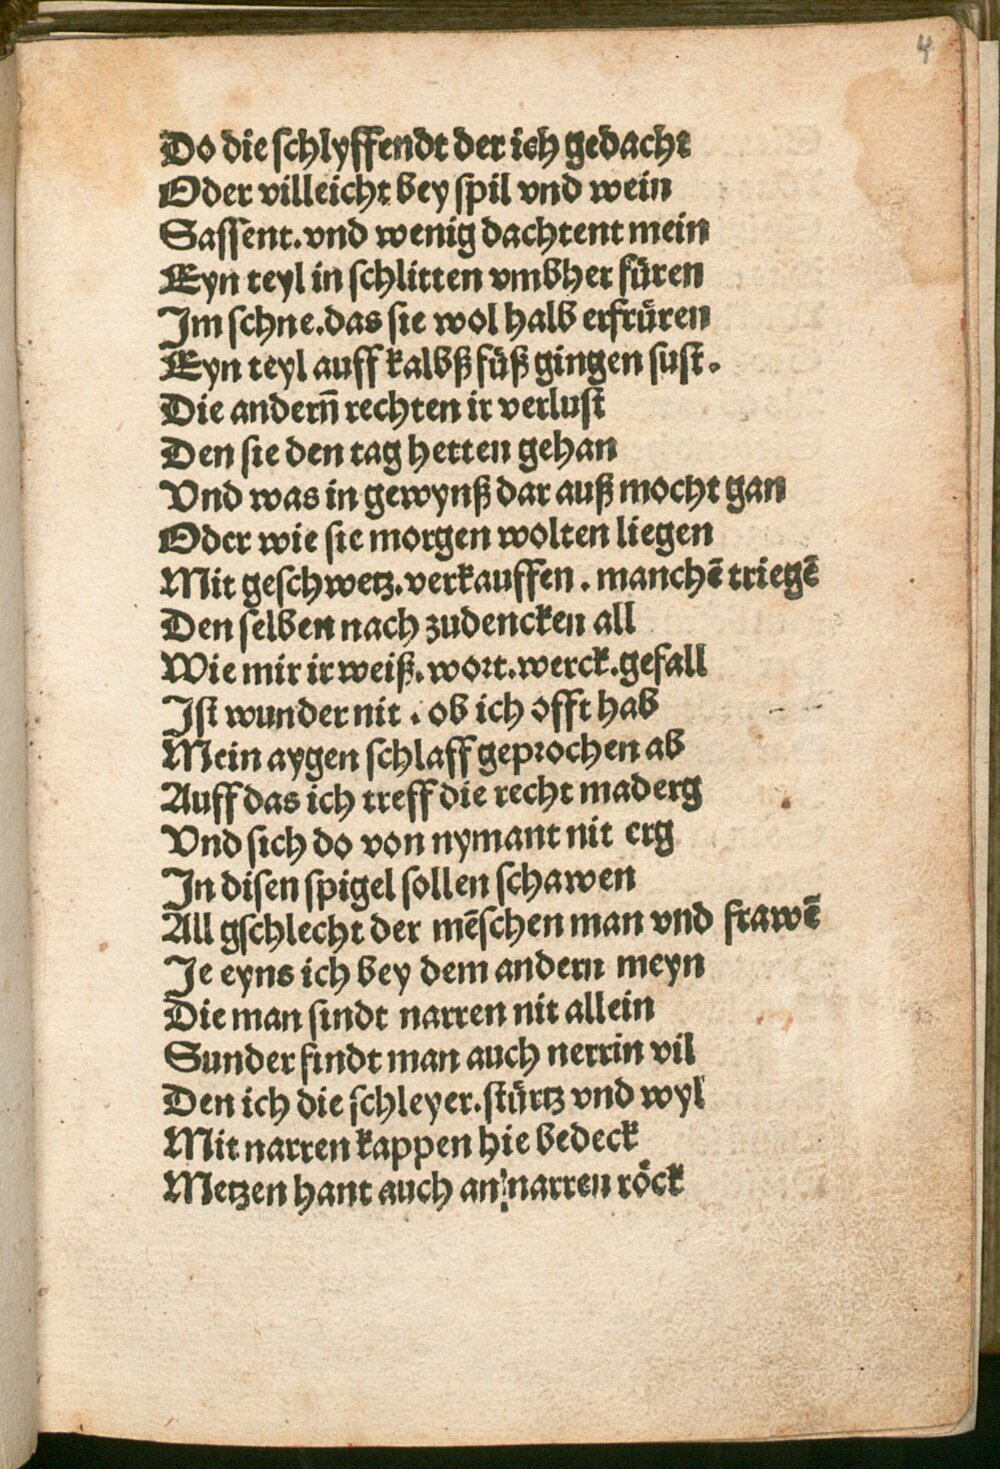 4
Do die schlyffendt der ich gedacht
Oder villeicht bey spil vnd wein
Sassent. vnd wenig dachtent mein
Eyn teyl in schlitten vmbher fůren
Im schne. das sie wol halb erfrůren
Eyn teyl auff kalbß fůß gingen sust.
Die andern̄ rechten ir verlust
Den sie den tag hetten gehan
Vnd was in gewynß dar auß mocht gan
Oder wie sie morgen wolten liegen
Mit geschwetz. verkauffen. manchē triegē
Den selben nach zudencken all
Wie mir ir weiß. wort. werck. gefall
Ist wunder nit. ob ich offt hab
Mein aygen schlaff geprochen ab
Auff das ich treff die recht maderg
Vnd sich do von nymant nit erg
In disen spigel sollen schawen
All gschlecht der mēschen man vnd frawē
Je eyns ich bey dem andern meyn
Die man sindt narren nit allein
Sunder findt man auch nerrin vil
Den ich die schleyer. stürtz vnd wyl
Mit narren kappen hie bedeck
Metzen hant auch an narren röck